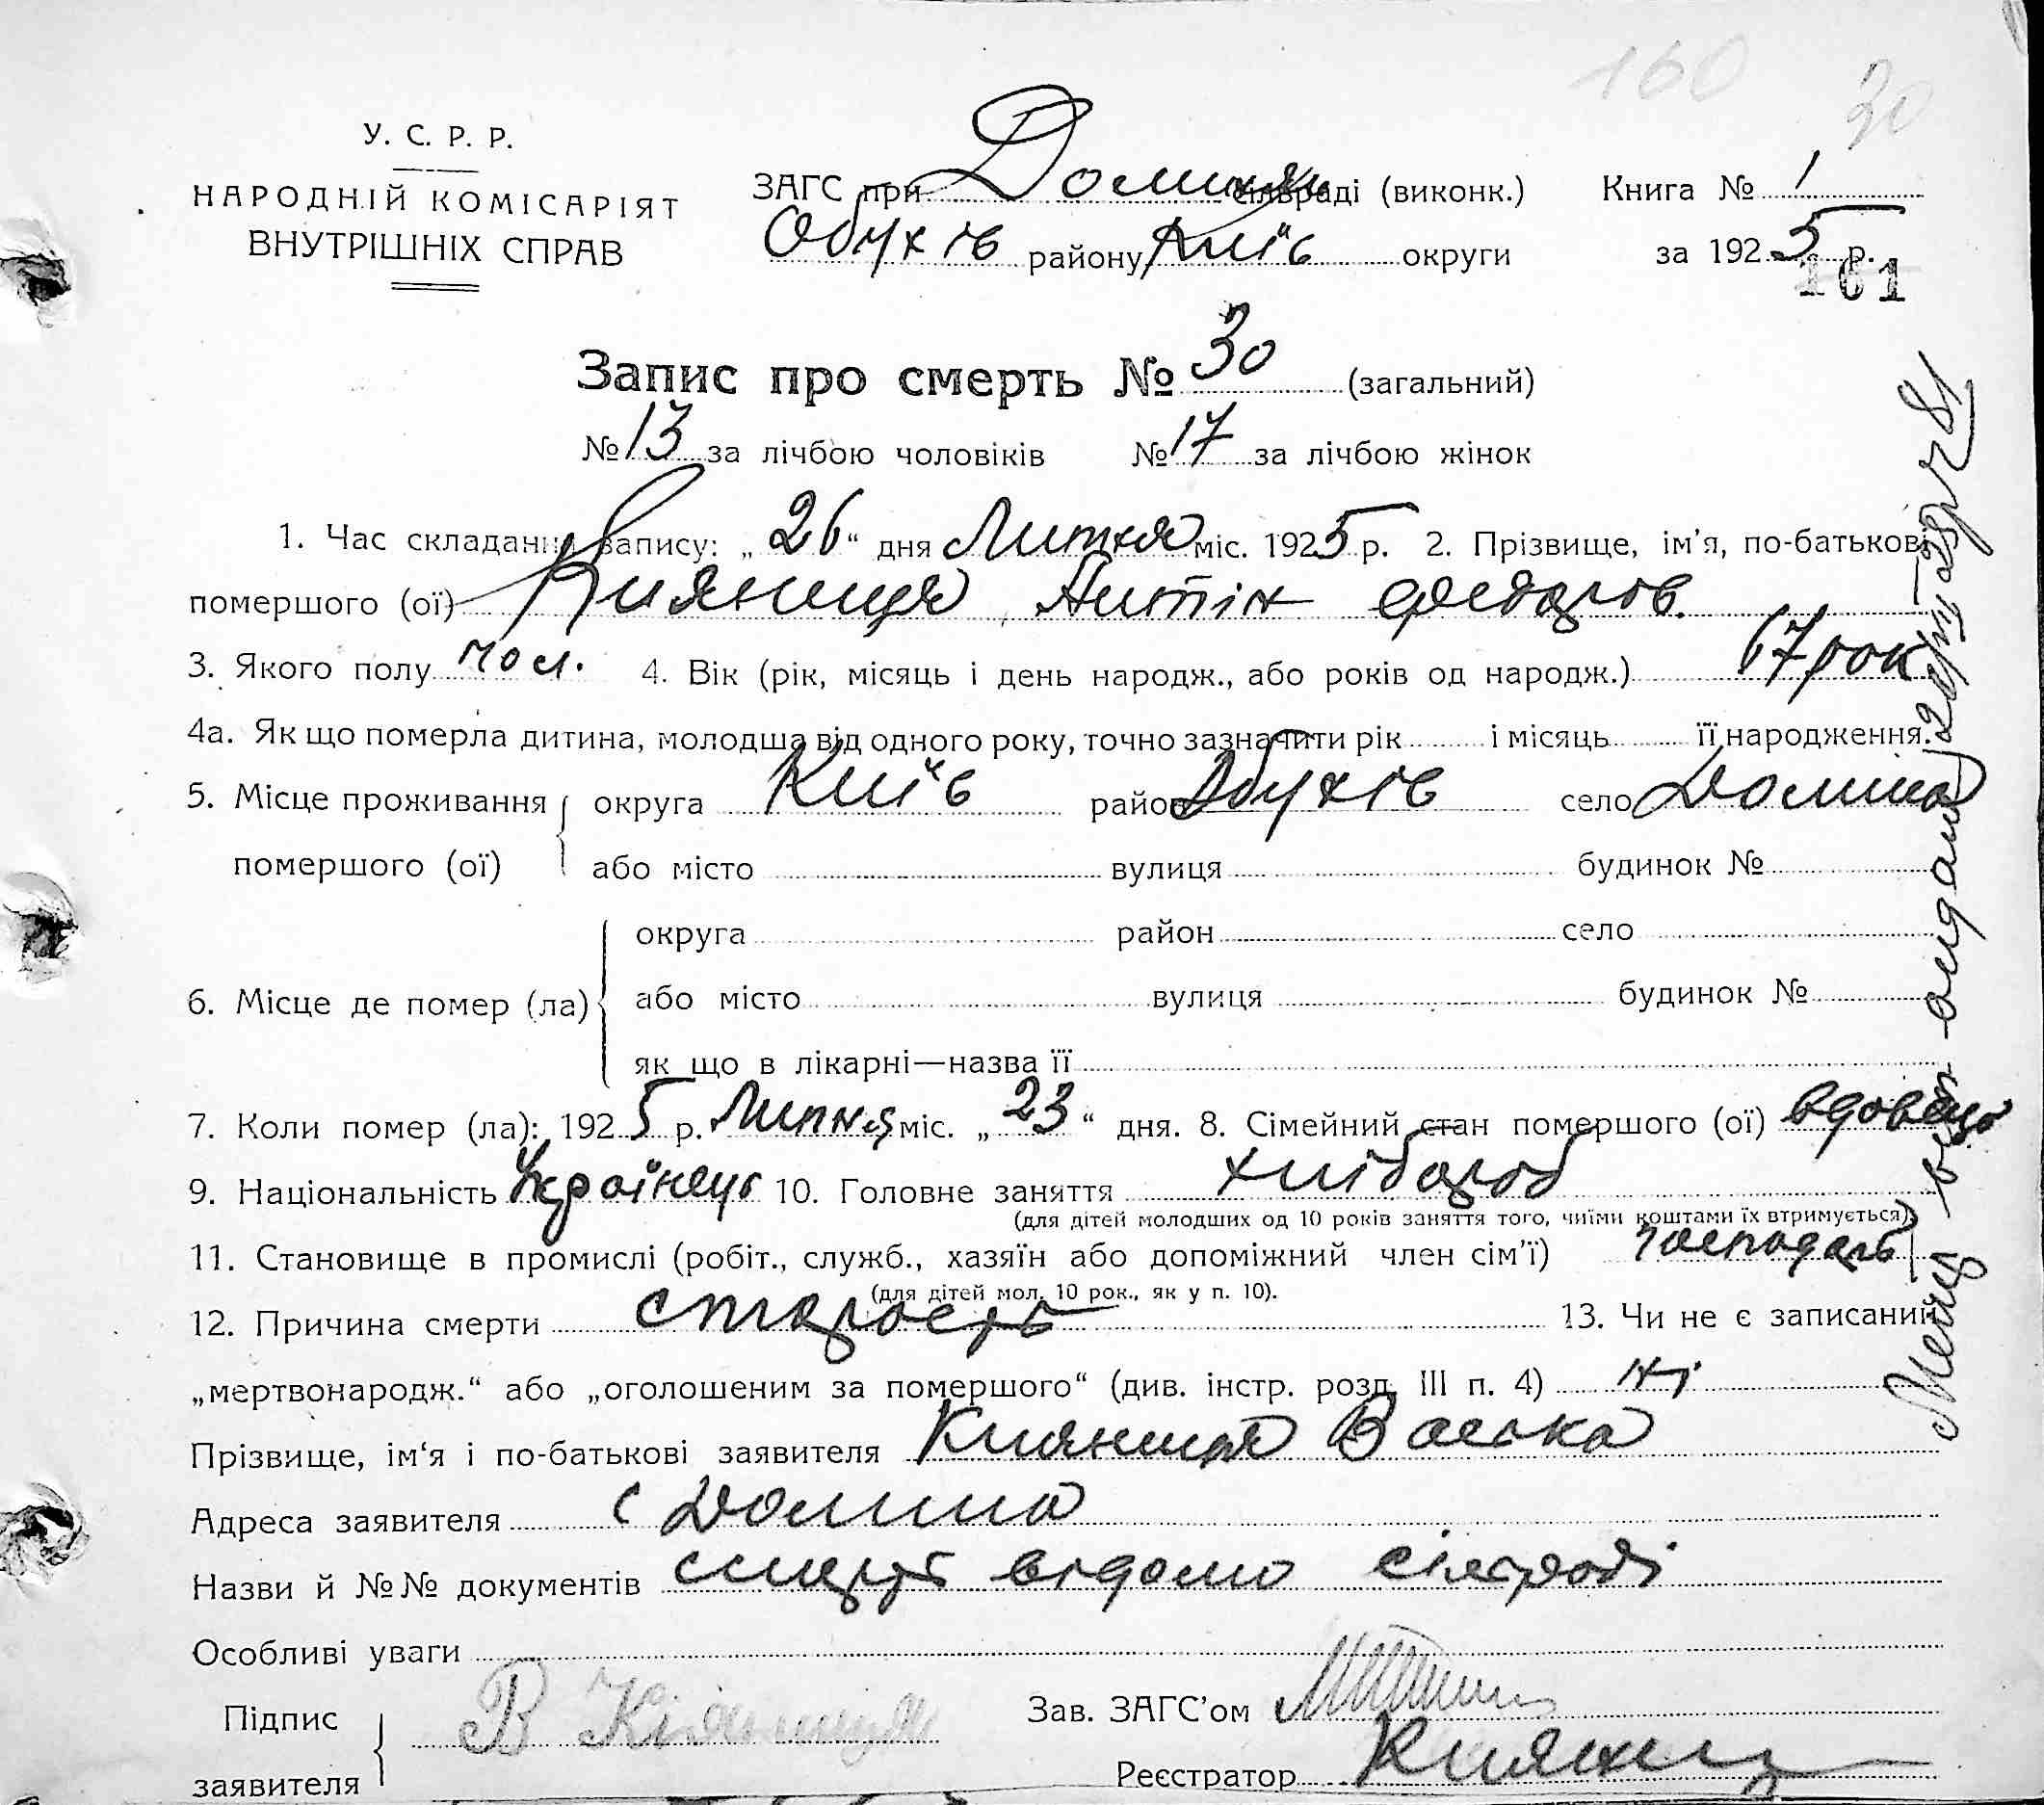 160
30
У. С. Р. Р.
НАРОДНІЙ КОМІСАРІЯТ
ВНУТРІШНІХ СПРАВ
ЗАГС при Долинян сільраді (виконк.) Книга № 1
Обухів району Київ округи за 1925 р.
161
Запис про смерть № 30 (загальний)
№ 13 за лічбою чоловіків № 17 за лічбою жінок
1. Час складання запису: „26“ дня Липня міс. 1925 р. 2. Прізвище, ім'я, по-батькові
помершого (ої) Кияниця Антін Федоров.
3. Якого полу чол. 4. Вік (рік, місяць і день народж., або років од народж.) 67 рок
4а. Як що померла дитина, молодша від одного року, точно зазначити рік і місяць її народження.
5. Місце проживання помершого (ої) округа Київ район Обухів село Долина
або місто вулиця будинок №
6. Місце де помер (ла) округа район село
або місто вулиця будинок №
як що в лікарні—назва її
7. Коли помер (ла): 1925 р. Липня міс. „23“ дня. 8. Сімейний стан помершого (ої) вдовець
9. Національність Українець 10. Головне заняття хлібороб
(для дітей молодших од 10 років заняття того, чиїми коштами їх втримується)
11. Становище в промислі (робіт., служб., хазяїн або допоміжний член сім'ї) господарь
(для дітей мол. 10 рок., як у п. 10).
12. Причина смерти старость 13. Чи не є записаний
„мертвонародж.“ або „оголошеним за помершого“ (див. інстр. розд. III п. 4) ні
Прізвище, ім'я і по-батькові заявителя Кияниця Васька
Адреса заявителя с Долина
Назви й №№ документів смерть відомо сільраді
Особливі уваги
Підпис заявителя В Кіяниця
Зав. ЗАГС'ом
Реєстратор Кияниц